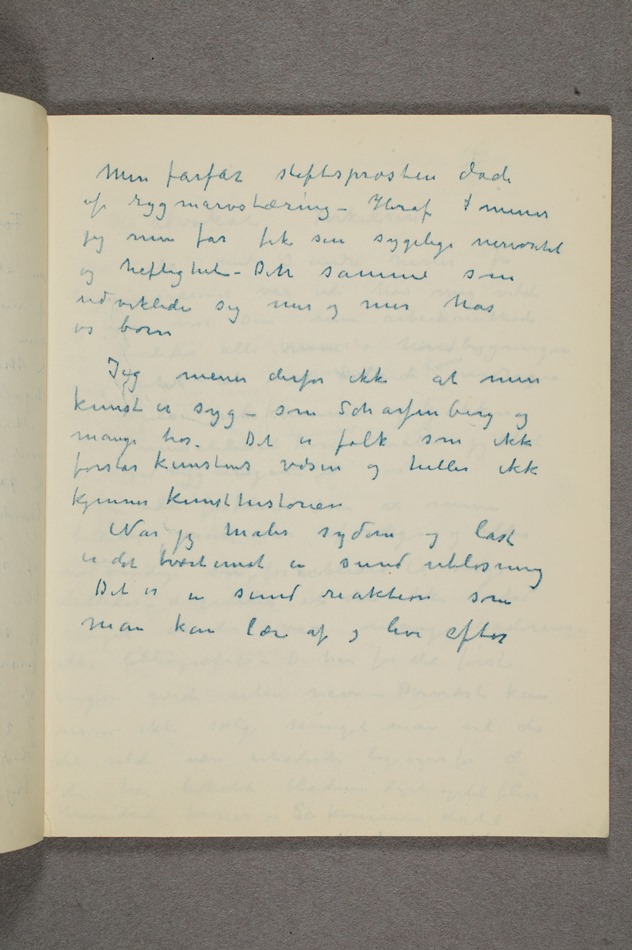 Min farfar stiftsprosten døde
af rygmarvstæring – Heraf mener
jeg min far fik sin sygelige nervøsitet
og heftighet – Det samme som
udviklede sig mer og mer hos
os børn
Jeg mener derfor ikke at min
kunst er syg – som Scharfenberg og
mange tror. Det er folk som ikke
forstår kunstens væsen og heller ikke
kjenner kunsthistorien
Når jeg maler sygdom og last
er det tværtimot en sund utløsning
Det er en sund reaktion som
man kan lære af og leve efter